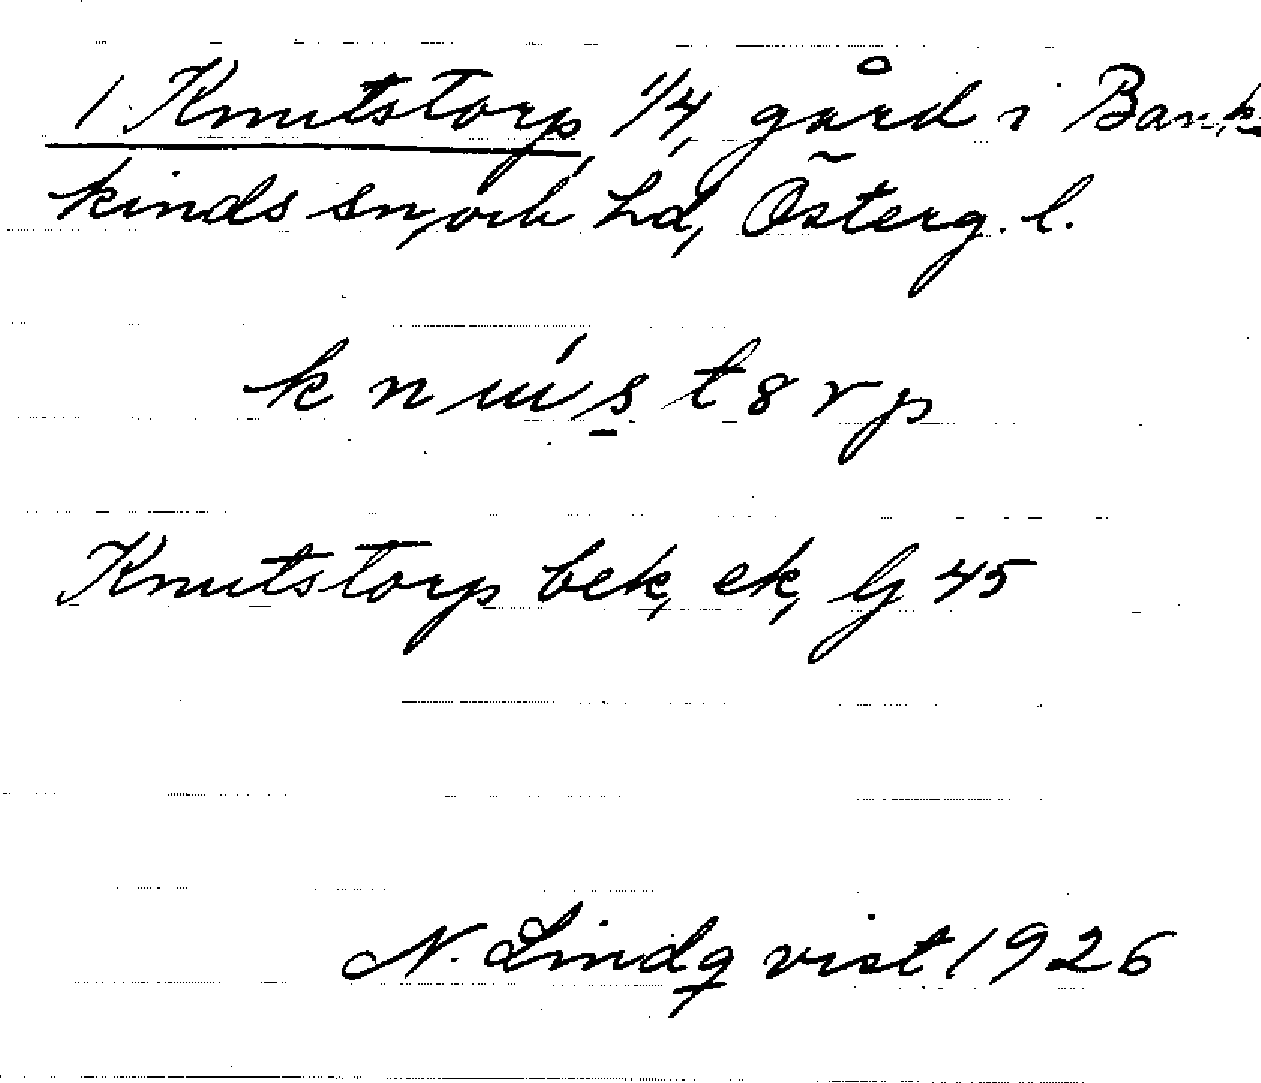 1. Knutstorp 1/4, gård i Bank-
kinds sn, och hd, Österg. l.
k n ú s t 8 r p
Knutstorp bek, ek, Gj 45
N. Lindqvist 1926